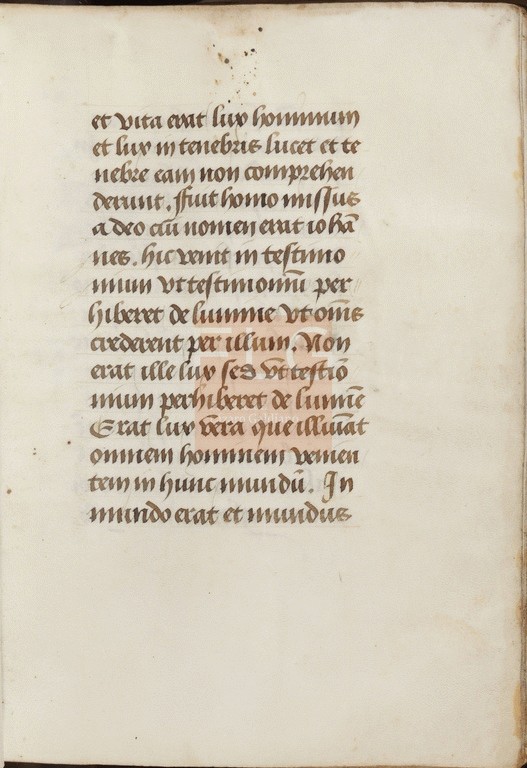 et vita erat lux hominum
et lux in tenebris lucet et te
nebre eam non comprehen
derunt. fuit homo missus
a deo cui nomen erat iohā
nes. hic venit in testimo
nium vt testimoniū per
hiberet de lumine vt om̄s
crederent per illum. Non
erat ille lux sed vt testīo
nium perhiberet de lumīe
Erat lux vera que illuīat
omnem hominem venien
tem in hunc mundū. In
mundo erat et mundus
FLG
Lázaro Galdiano